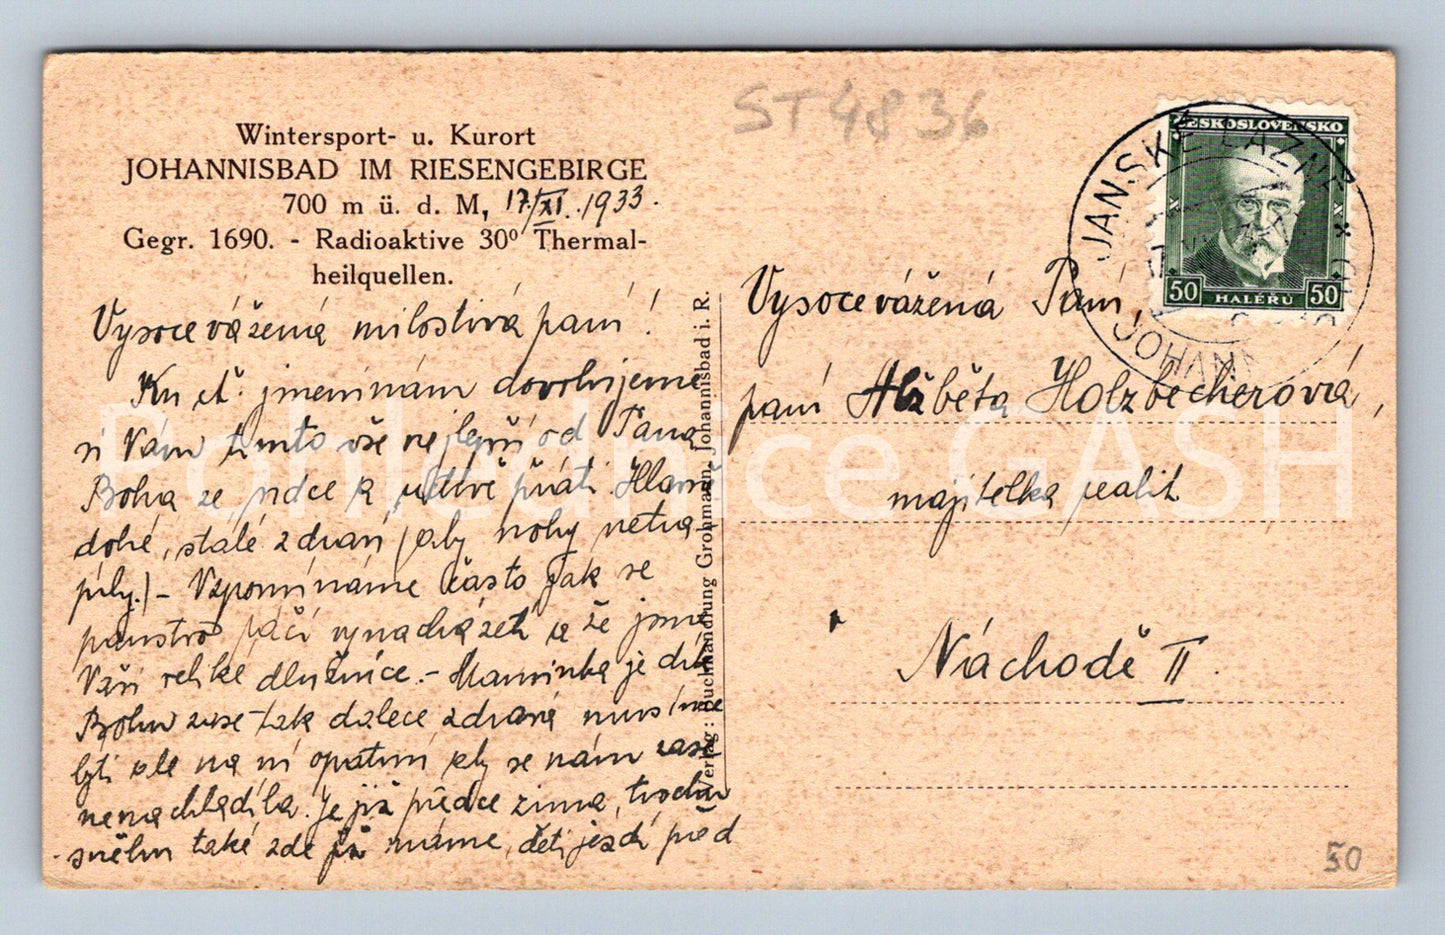 ST4836
Wintersport- u. Kurort
JOHANNISBAD IM RIESENGEBIRGE
700 m ü. d. M, 17./XI. 1933.
Gegr. 1690. - Radioaktive 30⁰ Thermal-
heilquellen.
Vysocevážená milostivá paní!
jmeninám dovolujeme
si Vám tímto vše nejlepší od Pána
Boha ze srdce a přáti. Hlavně
stálé zdraví (aby nohy netra-
pily.) - Vzpomínáme často jak se
panstvo páčí vynacházeti a že jsme
Vaši velké dlužnice. - Maminka je dík
Bohu zase tak dalece zdravá musíme
býti ale na ní opatrní aby se nám zase
nenachladila. Je již přece zima, trochu
sněhu také zde již máme, děti jezdí před
Verlag: Buchhandlung Grohmann, Johannisbad i. R.
ČESKOSLOVENSKO
50 HALÉRŮ 50
JANSKÉ LÁZNĚ
JOHANN
Vysocevážená Paní,
paní Alžběta Holzbecherová,
majitelka realit
Náchodě II.
50
Pohlednice GASH